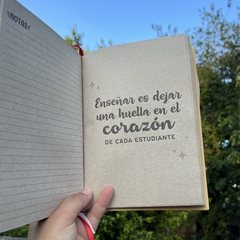 Notas:
Enseñar es dejar
una huella en el
corazón
DE CADA ESTUDIANTE